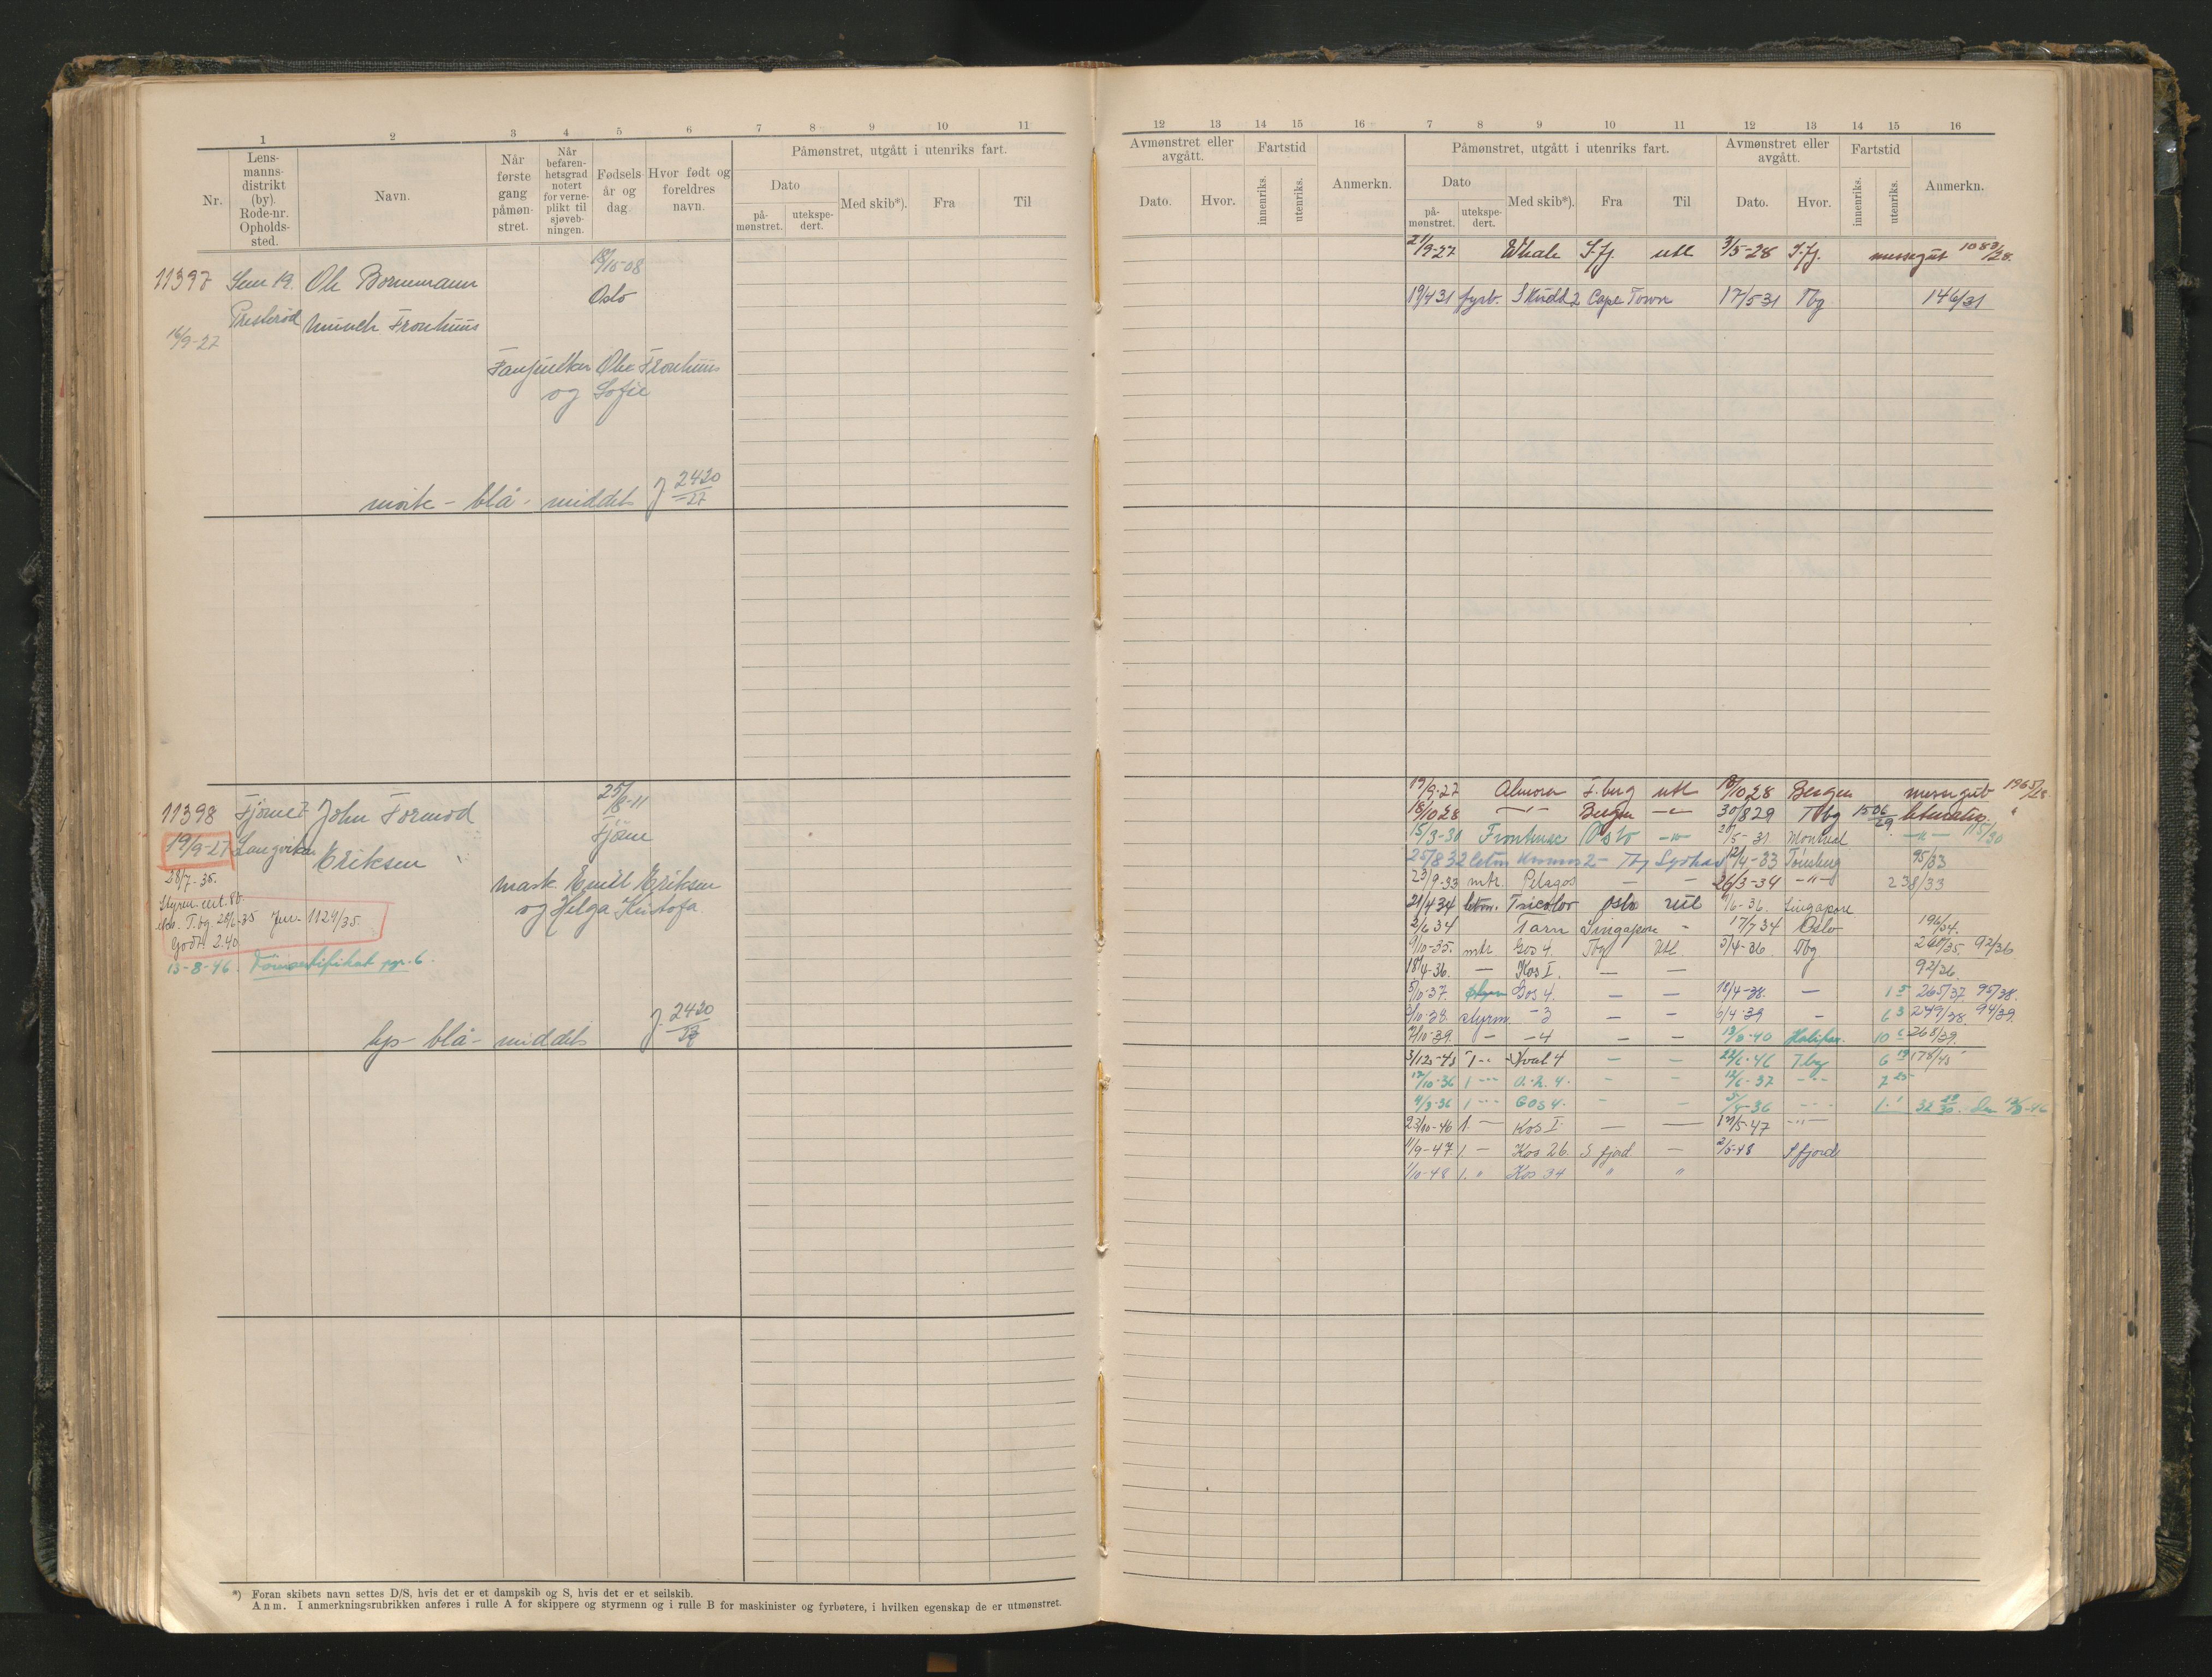 1 2 3 4 5 6 7 8 9 10 11
Nr.
Lens-
manns-
distrikt
(by).
Rode-nr.
Opholds-
sted.
Navn.
Når
første
gang
påmøn-
stret.
Når
befaren-
hetsgrad
notert
for verne-
plikt til
sjøveb-
ningen.
Fødsels-
år og
dag
Hvor født og
foreldres
navn.
Påmønstret, utgått i utenriks fart.
Dato
på-
mønstret.
utekspe-
dert.
Med skib*).
Fra
Til
11397 Sem 19. Ole Bornemann 18/10-08
Oslo
Presterød Munch Fronhuus
16/9-27
Ole Fronhuus
og Sofie
mørk - blå - middels J 2420
-27
11398 Fjørne 7 John Formod 25/8-11
Tjøme
19/9-27 Eriksen
28/7-35.
mask. Emil Eriksen
og Helga Kristofa
Tbg. 28/6-35 Jnr. 1129/35.
Godt. 2.40
13-8-46.
lys - blå - middels J. 2420
*) Foran skibets navn settes D/S, hvis det er et dampskib og S, hvis det er et seilskib.
Anm. I anmerkningsrubrikken anføres i rulle A for skippere og styrmenn og i rulle B for maskinister og fyrbøtere, i hvilken egenskap de er utmønstret.
12 13 14 15 16 7 8 9 10 11 12 13 14 15 16
Avmønstret eller
avgått.
Dato.
Hvor.
Fartstid
innenriks.
utenriks.
Anmerkn.
Påmønstret, utgått i utenriks fart.
Dato
på-
mønstret.
utekspe-
dert.
Med skib*).
Fra
Til
Avmønstret eller
avgått.
Dato.
Hvor.
Fartstid
innenriks.
utenriks.
Anmerkn.
21/9-27 Whale S.fj. utl 3/5-28 S.fj. messegut 1083/28.
19/4 31 fyrb. Skudd 2 Cape Town 17/5 31 Tbg 146/31
19/9-27 Almora utl 18/10 28 Bergen messegut 1965/28.
18/10 28 -"- Bergen 30/8 29 Tbg 1506/29
15/3-30 Oslo -"- 5-31 Montreal -"- 115/30
25/8 32 Kosmos 2 - Tbg Sydhav 12/4-33 Tønsberg 95/33
23/9-33 mtr. Pelagos - - 26/3-34 -"- 238/33
21/4 34 Tricolor Oslo utl 6-36. Singapore
2/6 34 Tarn Singapore - 17/7 34 Oslo 196/34.
9/10-35. mtr Gos 4. Tbg Utl. 5/4-36. Tbg 260/35. 92/36
18/4-36. - Kos I. - - 92/36
5/10-37. Gos 4. - - 18/4-38. - 1 5 265/37. 95/38.
2/10-38. styrm. - 3 - - 6/4-39 - 6 3 249/38. 94/39.
7/10-39. - - 4 - - 13/6-40 Halifax. 10 6 268/39.
3/12-45 1 -"- Hval 4 - - 22/6-46 Tbg 6 19 178/45
12/10-36 1 -"- - - 12/6-37 -"- 7 25
4/3-36 1 -"- Gos 4. - - 5/4-36 -"- 1. 1
23/10-46 1. - Kos I. - - 12/5-47 -"-
11/9-47 1. - Kos 26. S fjord - 2/5-48 S fjord
1/10-48 1. " Kos 34 " "